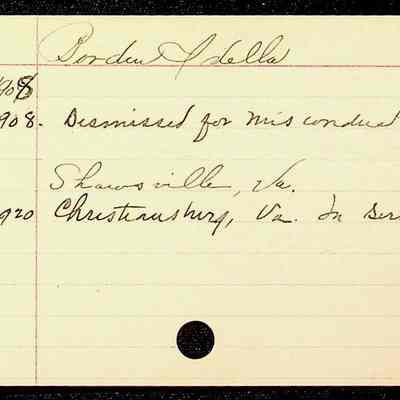 Borden Idella
908
908. Dismissed for misconduct
Shawsville, Va.
920 Christiansburg, Va. In Ser